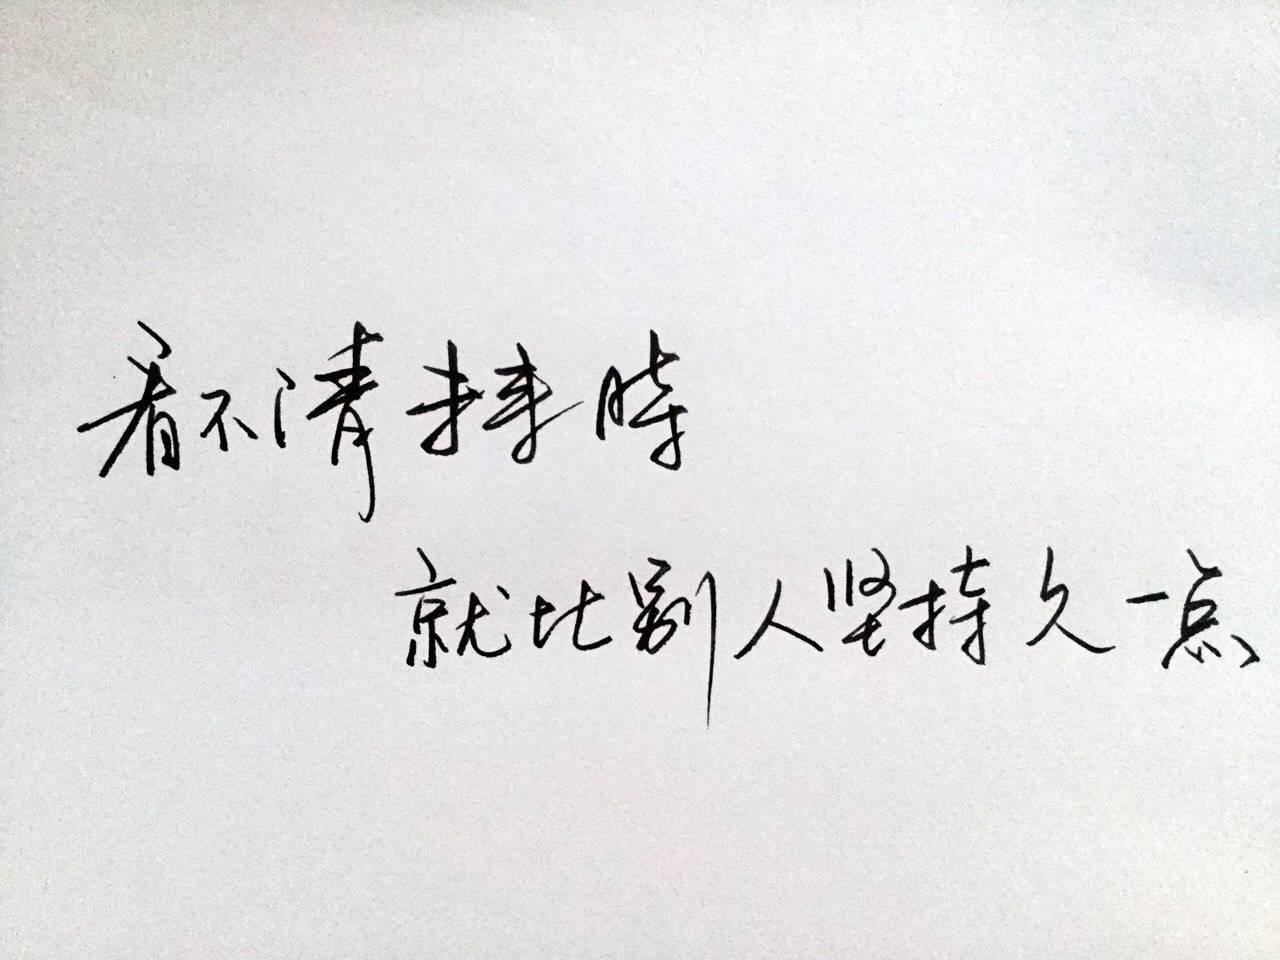 看不清时
就比别人坚持久一点